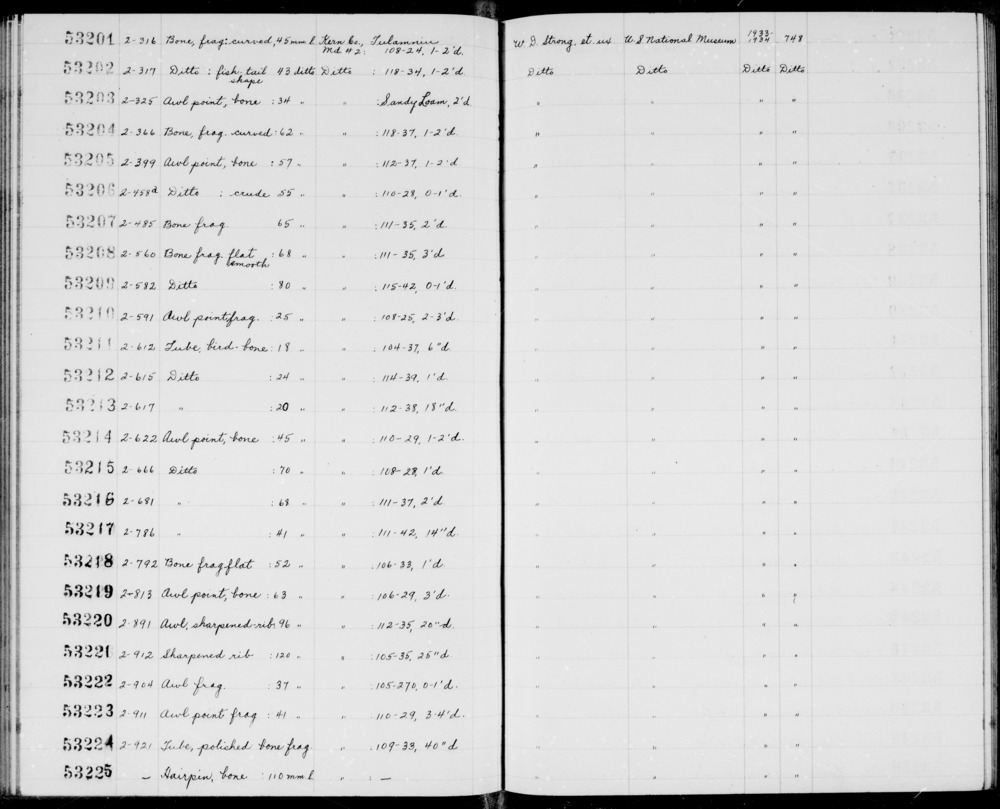 53201 2-316 Bone, frag: curved, 45 mm l Kern Co., Tulamniu W. D. Strong, et ux U S National Museum 1933- 748
Md. # 2: 108-24, 1-2'd. 1934
53202 2-317 Ditto : fish tail 43 ditto Ditto : 118-34, 1-2'd. Ditto Ditto Ditto Ditto
shape
53203 2-325 Awl point, bone : 34 " " : Sandy Loam, 2'd " " " "
53204 2-366 Bone, frag. curved : 62 " " : 118-37, 1-2'd. " " " "
53205 2-399 Awl point, bone : 57 " " : 112-37, 1-2'd " " " "
53206 2-458a Ditto : crude 55 " " : 110-28, 0-1'd. " " " "
53207 2-485 Bone frag. 65 " " : 111-35, 2'd. " " " "
53208 2-560 Bone frag. flat : 68 " " : 111-35, 3'd. " " " "
smooth
53209 2-582 Ditto : 80 " : 115-42, 0-1'd. " " " "
53210 2-591 Awl point, frag. : 25 " " : 108-25, 2-3'd. " " " "
53211 2-612 Tube, bird-bone : 18 " " : 104-37, 6"d. " " " "
53212 2-615 Ditto : 24 " " : 114-39, 1'd. " " " "
53213 2-617 " : 20 " " : 112-38, 18"d. " " " "
53214 2-622 Awl point, bone : 45 " " : 110-29, 1-2'd. " " " "
53215 2-666 Ditto : 70 " " : 108-28, 1'd. " " " "
53216 2-681 " : 63 " " : 111-37, 2'd. " " " "
53217 2-786 " : 41 " " : 111-42, 14"d. " " " "
53218 2-792 Bone frag flat : 52 " " : 106-33, 1'd. " " " "
53219 2-813 Awl point, bone : 63 " " : 106-29, 3'd. " " " "
53220 2-891 Awl, sharpened-rib: 96 " " : 112-35, 20"d. " " " "
53221 2-912 Sharpened rib : 120 " " : 105-35, 25"d. " " " "
53222 2-904 Awl frag. : 37 " " : 105-270, 0-1'd. " " " "
53223 2-911 Awl point frag : 41 " " : 110-29, 3-4'd. " " " "
53224 2-921 Tube, polished bone frag. " : 109-33, 40"d " " " "
53225 — Hairpin, bone : 110 mm l " : — " " " "